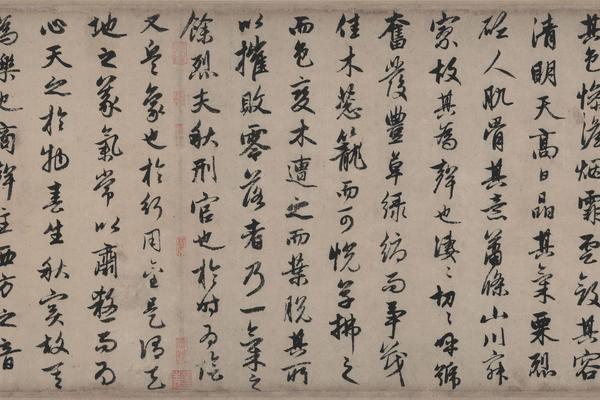 其色慘澹烟霏雲斂其容
清明天高日晶其氣栗烈
砭人肌骨其意蕭條山川寂
寥故其為聲也淒〻切〻呼號
奮發豐草綠縟而爭茂
佳木葱籠而可悅草拂之
而色變木遭之而葉脫其所
以摧敗零落者乃一氣之
餘烈夫秋刑官也於時為陰
又兵象也於行用金是謂天
地之義氣常以肅殺而為
心天之於物春生秋實故其
為樂也商聲主西方之音